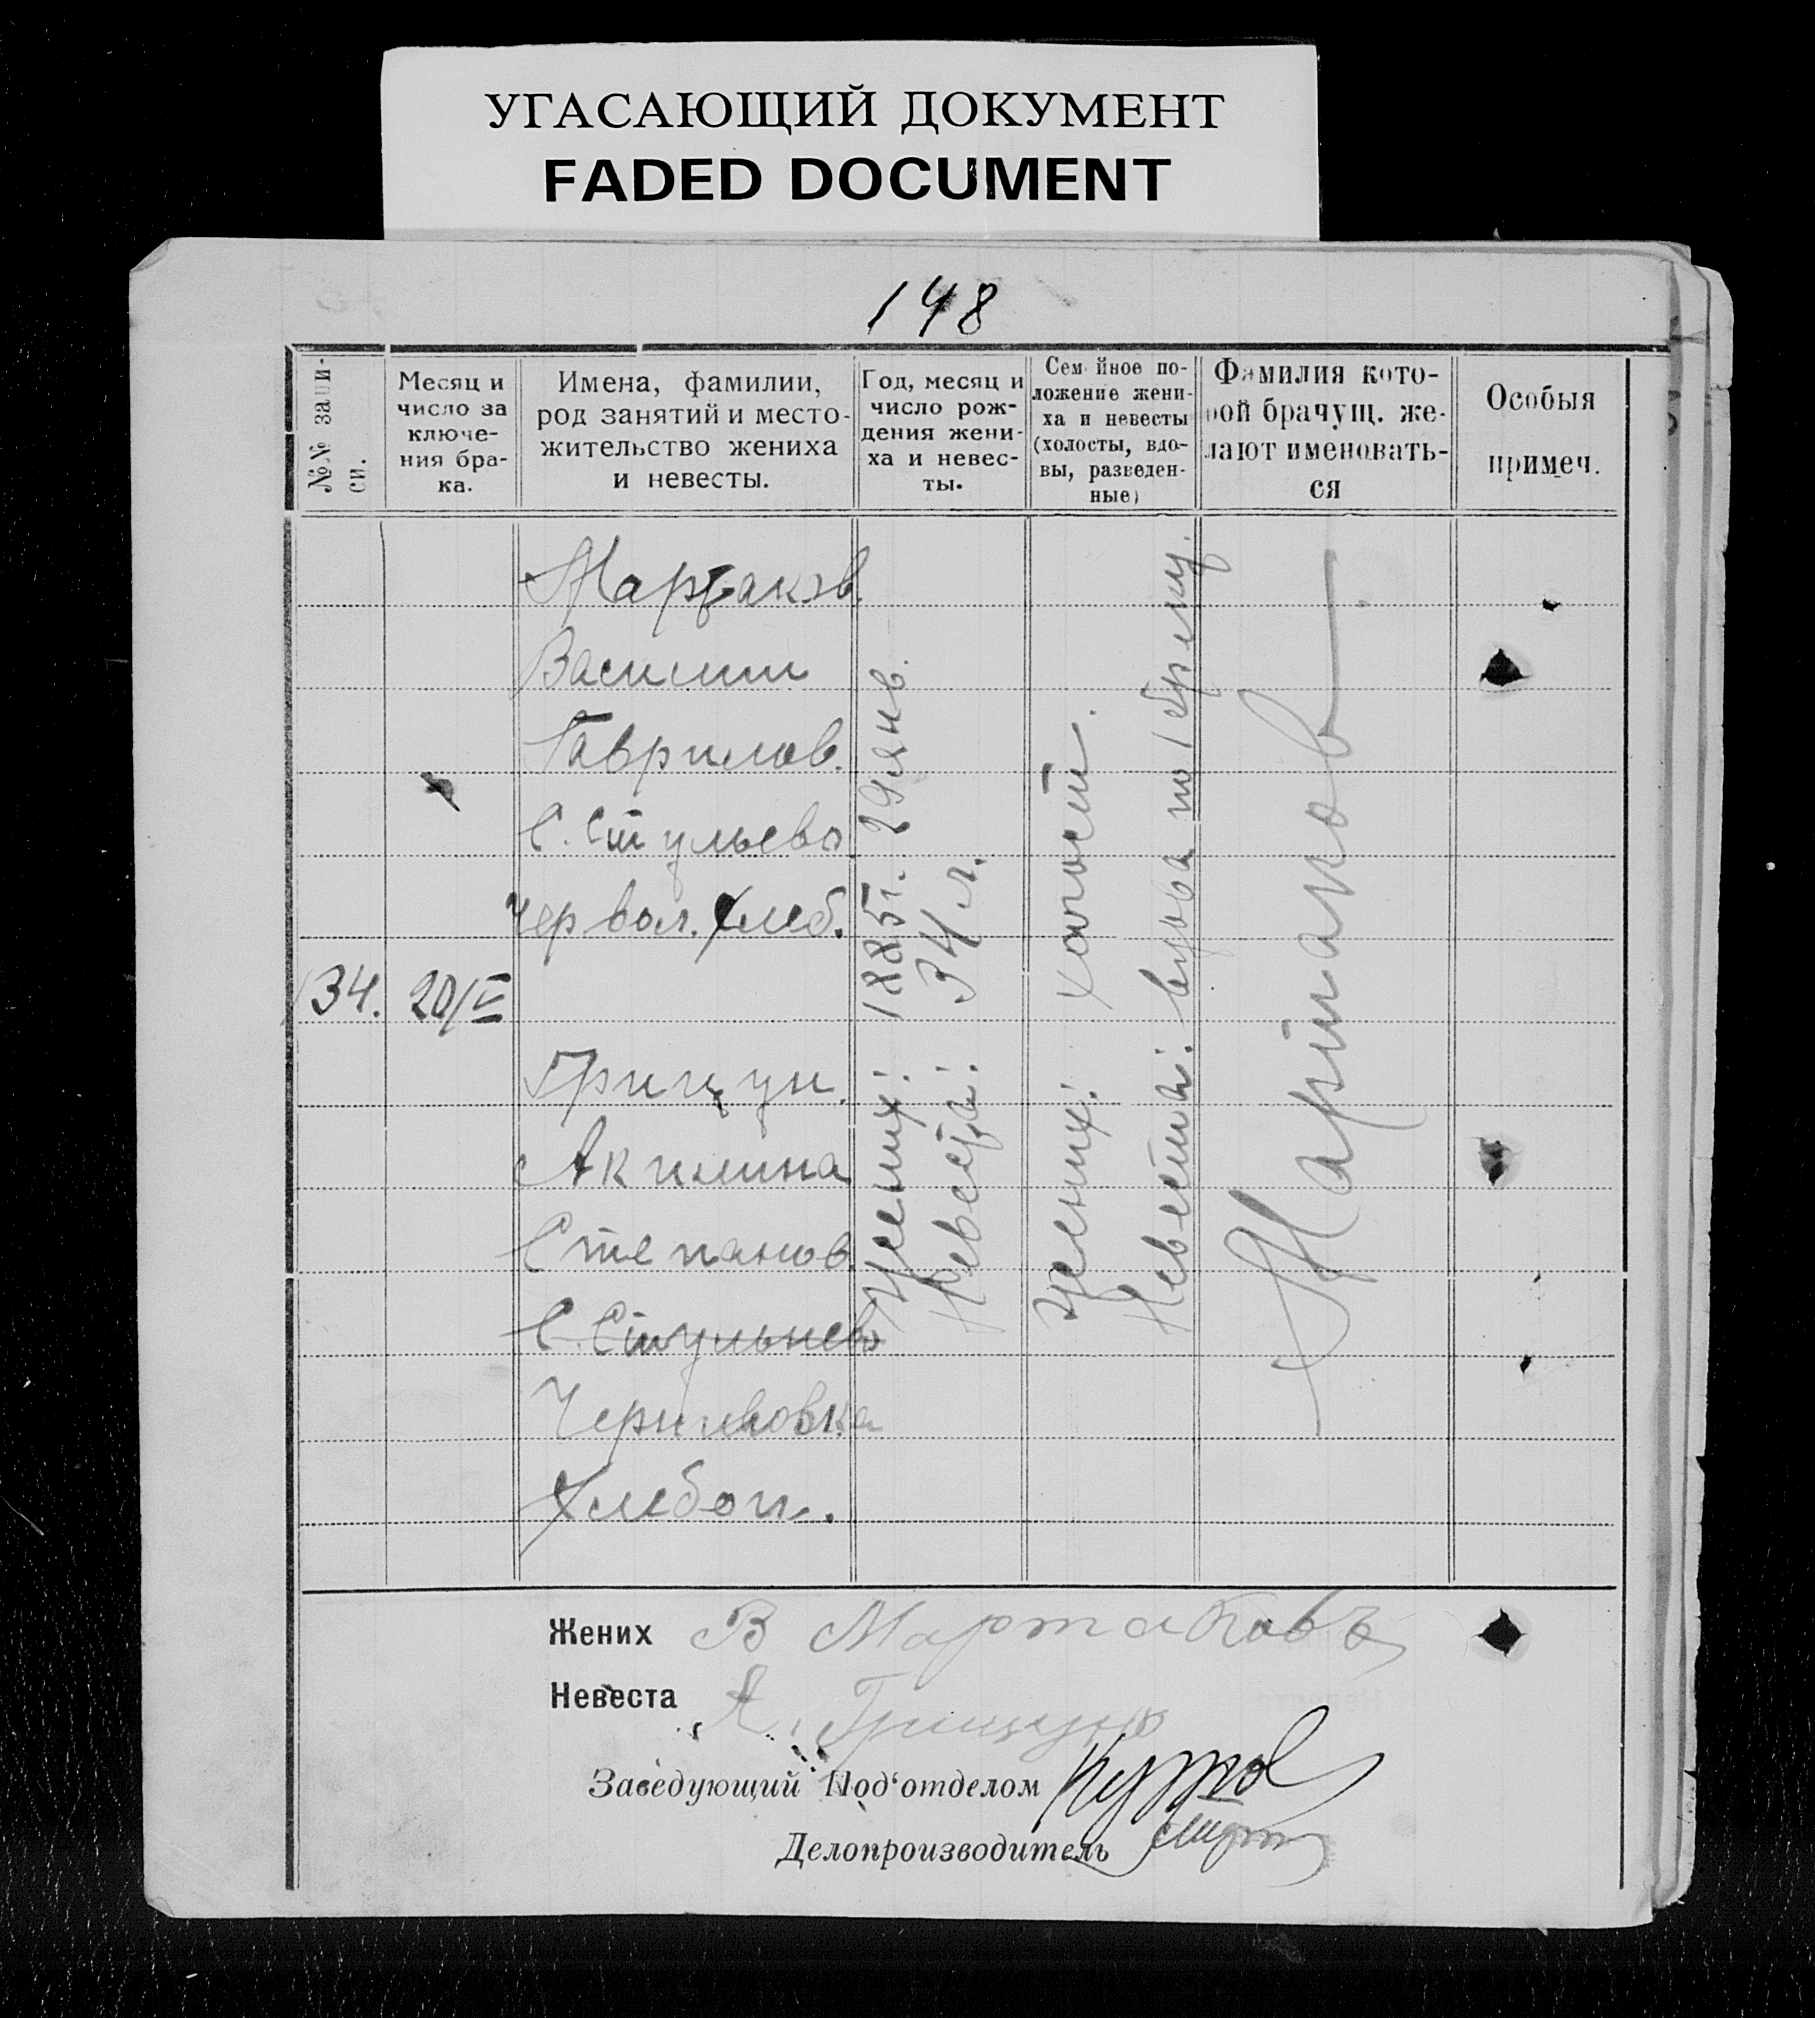 УГАСАЮЩИЙ ДОКУМЕНТ
FADED DOCUMENT
148
№№ запи-
си.
Месяц и
число за
ключе-
ния бра-
ка.
Имена, фамилии,
род занятий и место-
жительство жениха
и невесты.
Год, месяц и
число рож-
дения жени-
ха и невес-
ты.
Сем йное по-
ложение жени-
ха и невесты
(холосты, вдо-
вы, разведен-
ные)
Фамилия кото-
рой брачущ. же-
лают именовать-
ся
Особыя
примеч.
34.
20/V
Мартаков.
Василий
Гаврилов.
С. Стульево
Чер вол. Хлеб.
Грицун.
Акилина
Степанов.
С. Стульнево
Черниговка
Хлебоп.
Жених: 1885 г. 29 янв.
Невеста: 34 л.
Жених: холост.
Невеста: вдова по 1 браку.
Мартаков
Жених В Мартаковъ
Невеста А. Грицунъ
Заведующий Под'отделом
Делопроизводитель